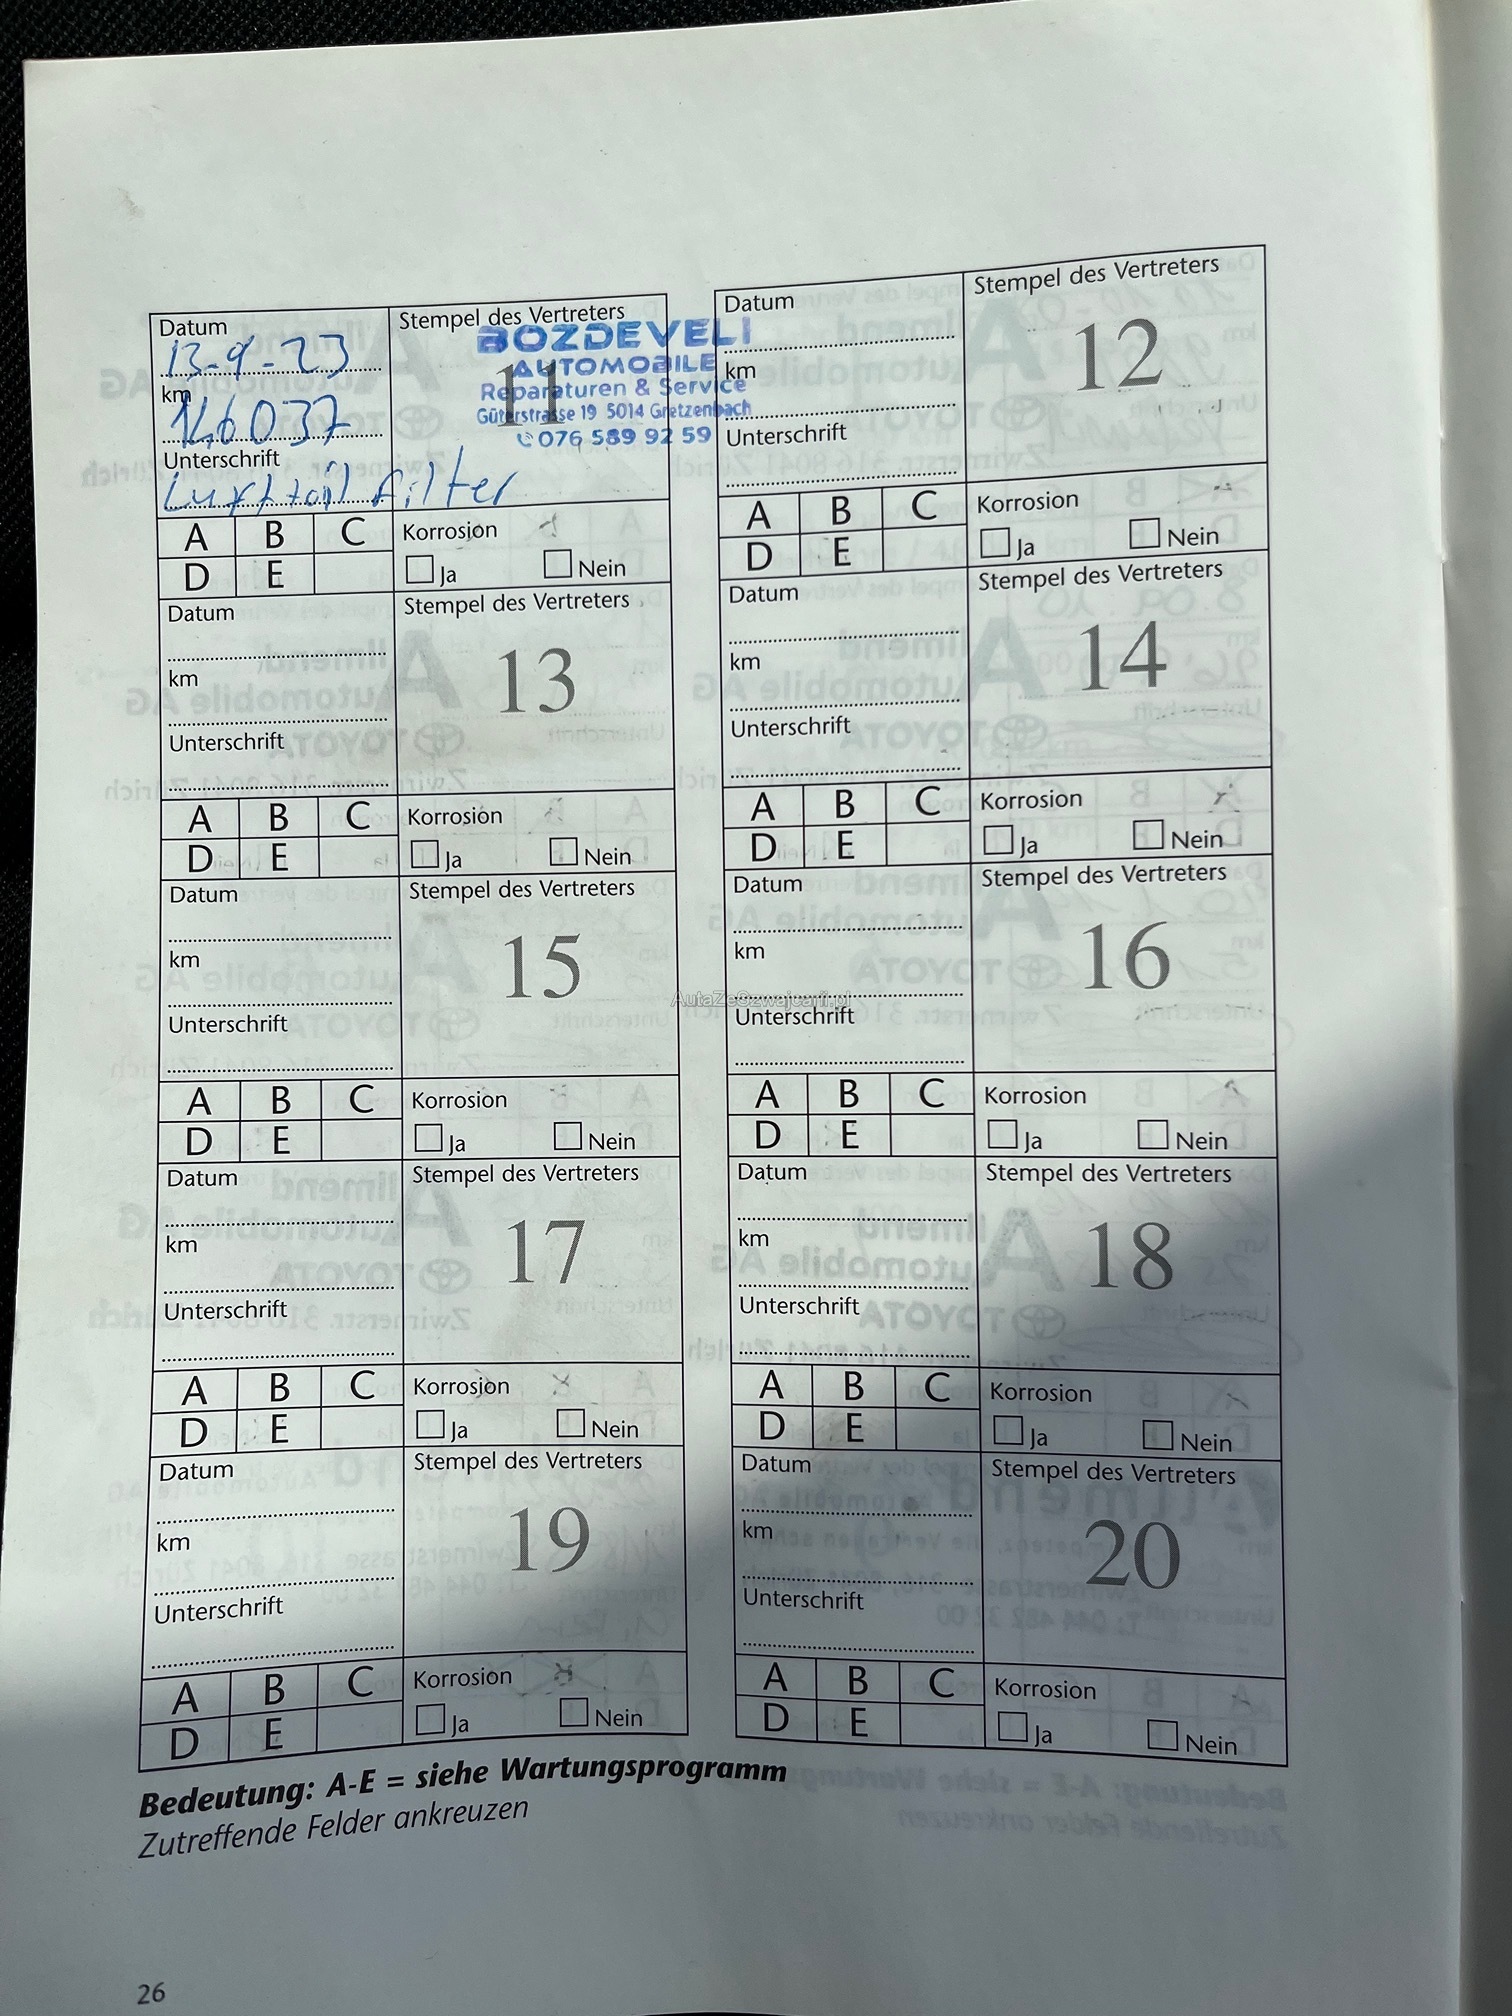 Datum
13-9-23
km
146037
Unterschrift
Luft + öil filter
Stempel des Vertreters
11
BOZDEVELI
AUTOMOBILE
Reparaturen & Service
Güterstrasse 19 5014 Gretzenbach
076 589 92 59
A B C
D E
Korrosion
Ja Nein
Datum
km
Unterschrift
Stempel des Vertreters
12
A B C
D E
Korrosion
Ja Nein
Datum
km
Unterschrift
Stempel des Vertreters
13
A B C
D E
Korrosion
Ja Nein
Datum
km
Unterschrift
Stempel des Vertreters
14
A B C
D E
Korrosion
Ja Nein
Datum
km
Unterschrift
Stempel des Vertreters
15
A B C
D E
Korrosion
Ja Nein
Datum
km
Unterschrift
Stempel des Vertreters
16
A B C
D E
Korrosion
Ja Nein
AutaZeSzwajcarii.pl
Datum
km
Unterschrift
Stempel des Vertreters
17
A B C
D E
Korrosion
Ja Nein
Datum
km
Unterschrift
Stempel des Vertreters
18
A B C
D E
Korrosion
Ja Nein
Datum
km
Unterschrift
Stempel des Vertreters
19
A B C
D E
Korrosion
Ja Nein
Datum
km
Unterschrift
Stempel des Vertreters
20
A B C
D E
Korrosion
Ja Nein
Bedeutung: A-E = siehe Wartungsprogramm
Zutreffende Felder ankreuzen
26